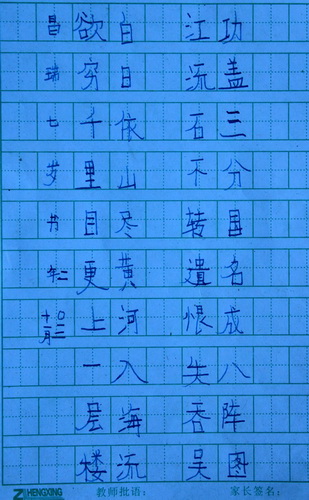 功盖三分国名成八阵图
江流石不转遗恨失吞吴
白日依山尽黄河入海流
欲穷千里目更上一层楼
昌瑞七岁书
HENGXING 教师批语： 家长签名：